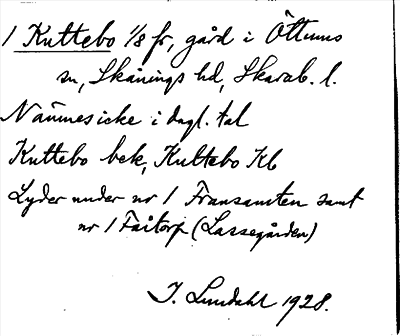 1 Kuttebo 1/8 fr, gård i Öttums
sn, Skånings hd, Skarab. l.
Nämnes icke i dagl. tal
Kuttebo bek, Kuttebo Kb
Lyder under nr 1 Fransamten samt
nr 1 Fåtorp (Lassegården)
J. Lundahl 1928.